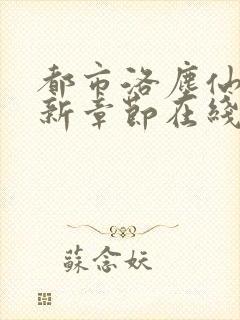 都市洛塵仙
新章節在綫
蘇念妖